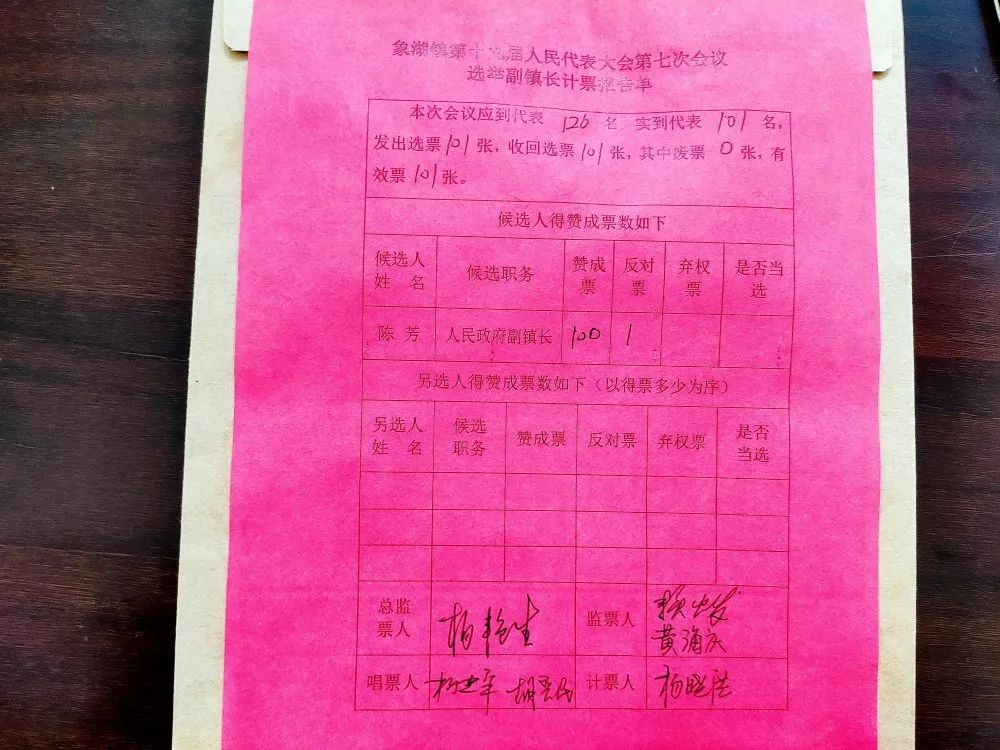 象湖镇第十九届人民代表大会第七次会议
选举副镇长计票报告单
本次会议应到代表 126 名 实到代表 101 名，
发出选票 101 张，收回选票 101 张，其中废票 0 张，有
效票 101 张。
候选人得赞成票数如下
候选人姓 名 候选职务 赞成票 反对票 弃权票 是否当选
陈 芳 人民政府副镇长 100 1
另选人得赞成票数如下（以得票多少为序）
另选人姓 名 候选职务 赞成票 反对票 弃权票 是否当选
总监票人 监票人
黄海庆
唱票人 计票人